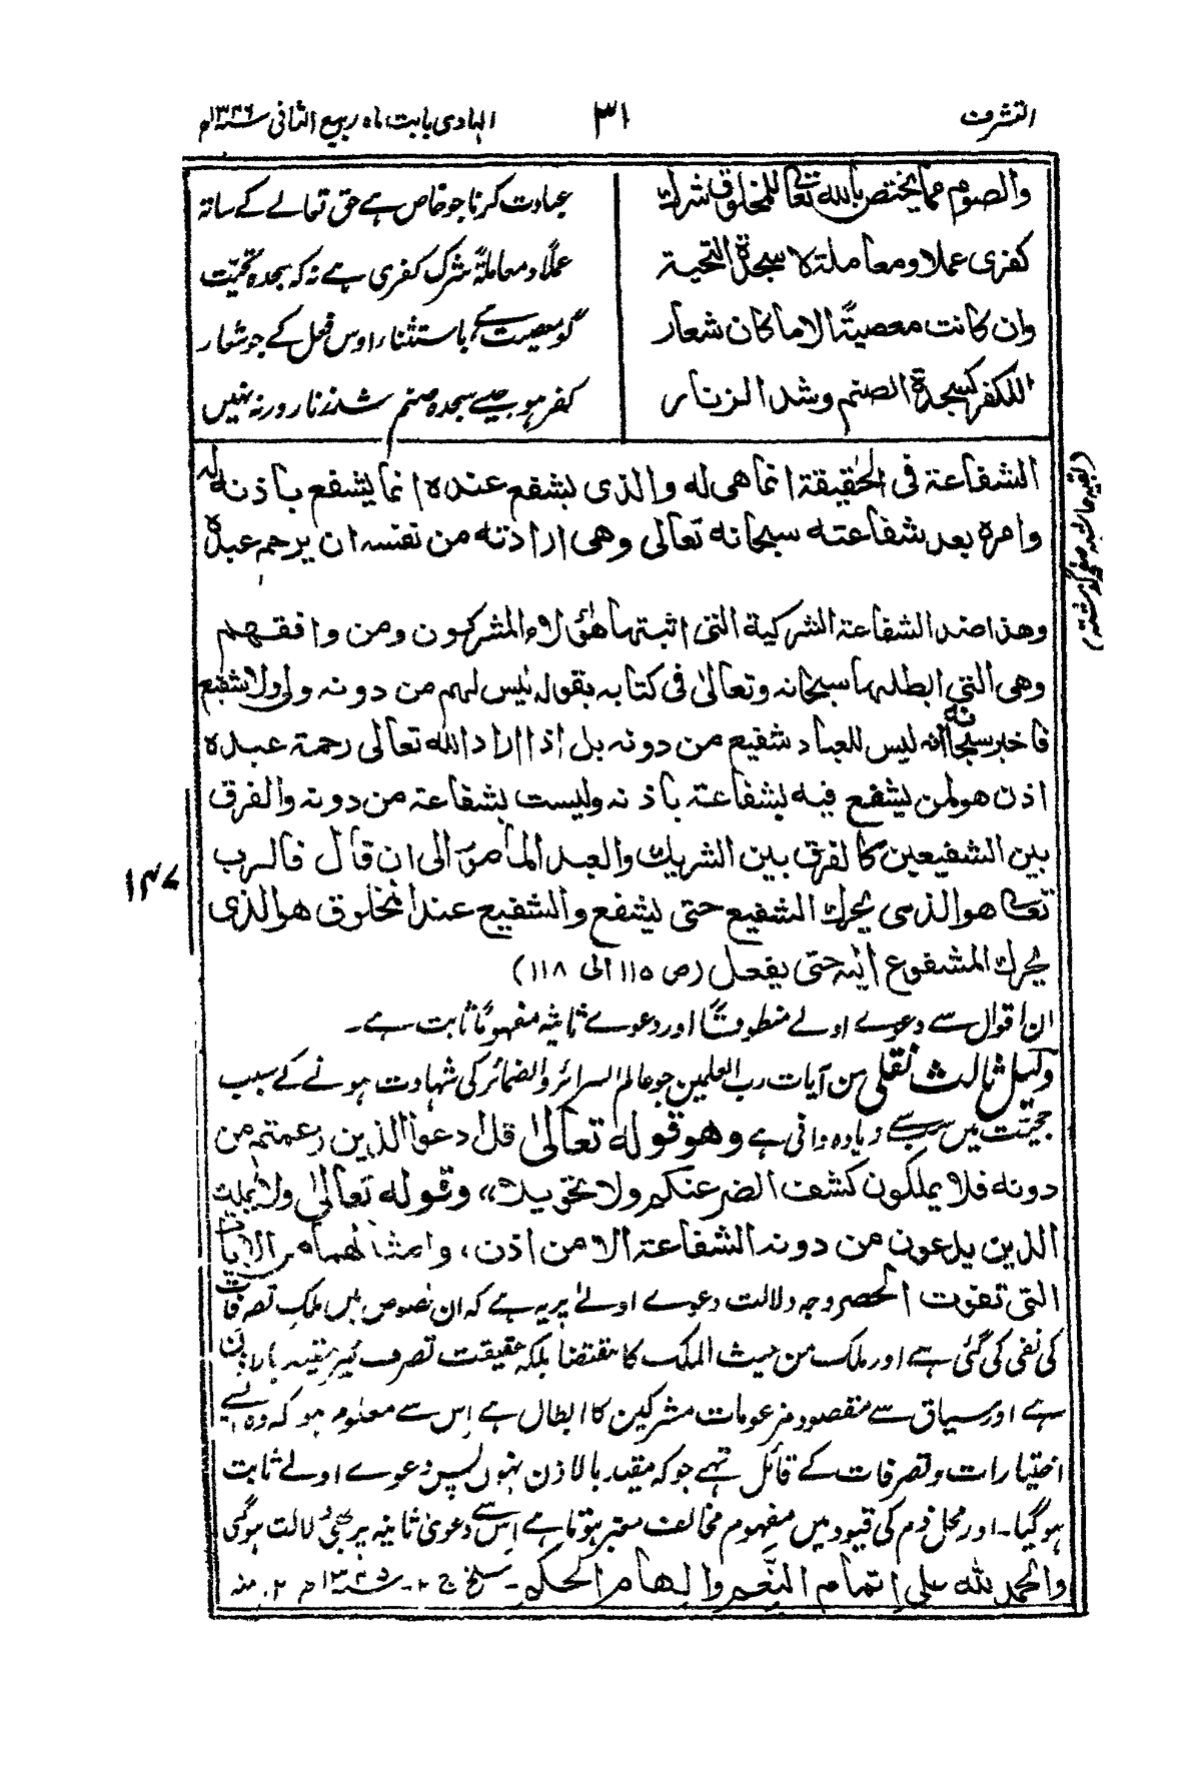 التشرف
۳۱
الہادی بابت ماہ ربیع الثانی ۱۳۴۶ھ
والصوم مما یختص باللہ تعالیٰ للمخلوق شرک
کفری عملا و معاملۃ لا سجدۃ التحیۃ
وان کانت معصیۃً الا ما کان شعار
اللکفر کسجدۃ الصنم وشد الزنار
عبادت کرنا جو خاص ہے حق تعالے کے ساتھ
عملاً و معاملۃً شرک کفری ہے نہ کہ سجدہ تحیّت
گو معصیت ہے باستثناء اوس فعل کے جو شعار
کفر ہو جیسے سجدہ صنم شد زنار ورنہ نہیں
(بقیہ حاشیہ صفحہ گذشتہ)
الشفاعۃ فی الحقیقۃ انما ھی لہ والذی یشفع عندہ انما یشفع باذنہ لہ
وامرہ بعد شفاعتہ سبحانہ تعالی وھی ارادتہ من نفسہ ان یرحم عبدہ
وھذا ضد الشفاعۃ الشرکیۃ التی اثبتہا ھٰؤلاء المشرکون ومن وافقھم
وھی التی ابطلہا سبحانہ وتعالیٰ فی کتابہ بقولہ لیس لہم من دونہ ولی ولا شفیع
فاخبر سبحانہ انہ لیس للعباد شفیع من دونہ بل اذا اراد اللہ تعالی رحمۃ عبدہ
اذن ھو لمن یشفع فیہ بشفاعۃ باذنہ ولیست بشفاعۃ من دونہ والفرق
بین الشفیعین کالفرق بین الشریک والعبد المامور الی ان قال فالرب
۱۴۷
تعالی ھو الذی یحرک الشفیع حتی یشفع والشفیع عند المخلوق ھو الذی
یحرک المشفوع الیہ حتی یفعل (ص ۱۱۵ الی ۱۱۸)
ان اقوال سے دعوے اولے منطوقًا اور دعوے ثانیہ مفہومًا ثابت ہے۔
دلیل ثالث نقلی من آیات رب العلمین جو عالم السرائر والضمائر کی شہادت ہونے کے سبب
حجیّت میں سب سے زیادہ وافی ہے وھو قولہ تعالیٰ قل ادعوا الذین زعمتم من
دونہ فلا یملکون کشف الضر عنکم ولا تحویلا،، وقولہ تعالیٰ ولا یملک
الذین یدعون من دونہ الشفاعۃ الا من اذن، وامثالھما من الایات
التی تفوت الحصر وجہ دلالت دعوے اولےٰ پر یہ ہے کہ ان نصوص میں ملک تصرفات
کی نفی کی گئی ہے اور ملک من حیث الملک کا مقتضا بلکہ حقیقت تصرف غیر مقید بالاذن
ہے اور سیاق سے مقصود مزعومات مشرکین کا ابطال ہے اس سے معلوم ہوا کہ وہ ایسے
اختیارات و تصرفات کے قائل تہے جو کہ مقید بالاذن نہوں پس دعوے اولے ثابت
ہو گیا۔ اور محل ذم کی قیود میں مفہوم مخالف معتبر ہوتا ہے اس سے دعویٰ ثانیہ پر بھی دلالت ہوگئی
والحمد للہ علی اتمام النعم والہام الحکم۔ سلخ ج ۲۔ ۱۳۴۵ھ ۱۲۔ منہ